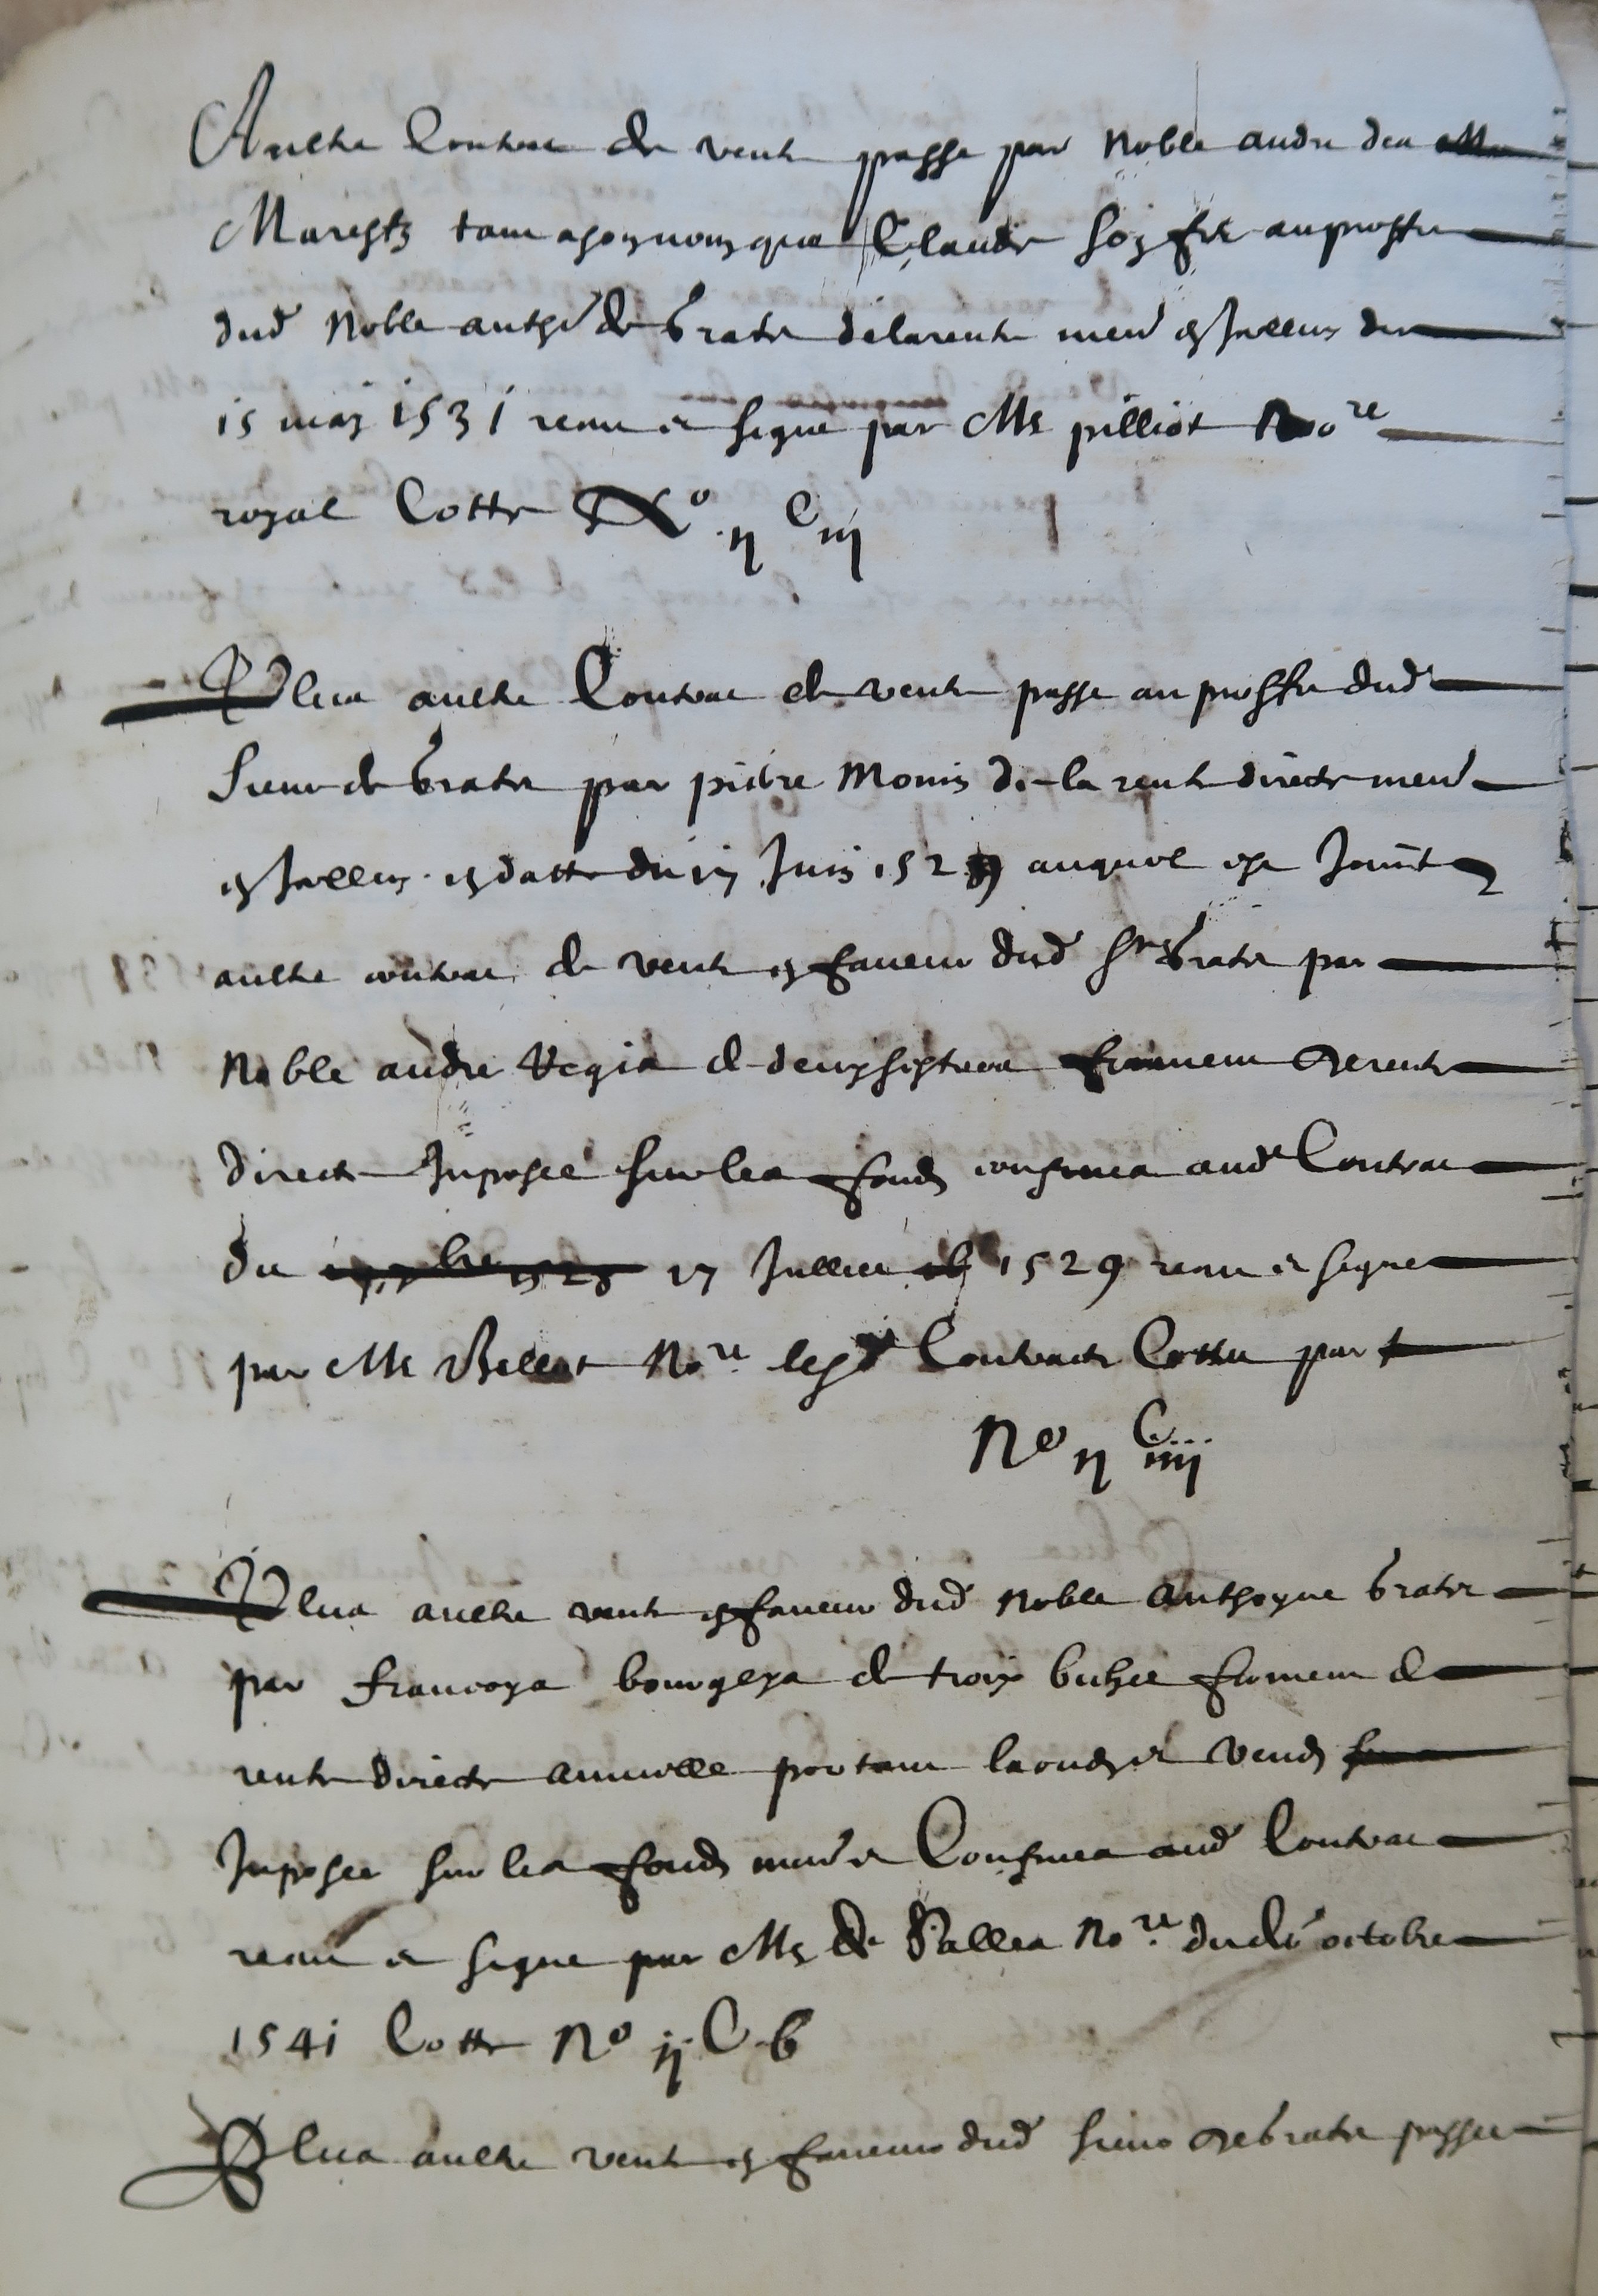 Aultre Contrac de vente passe par Noble andre des
Marestz tam a son nom que Claude son fre au proffit
dud Noble anthe de brate de la rente men en Icelluy du
15 may 1531 receu et signe par Me pilliot Nore
royal Cotte No ij C iij
Plus aultre Contrac de vente passe au proffit dud
sieur de brate par pierre Monin de la rente directe men
en Icelluy en datte du Juin 1529 auquel est Joint
aultre contrac de vente en faveur dud sr brate par
Noble andre de deux septiers froment de rente
directe Imposee sur les fonds confines aud Contrac
du 17 Jullier 1529 receu et signe
par Me Nore lesd Contracts Cottes par
No ij C iiij
Plus aultre vente en faveur dud Noble Anthoyne brate
par francoys bourgeys de troix bichet froment de
rente directe annuelle portant laouds et vends
Imposee sur les fonds men et Confines aud Contrac
receu et signe par Me de Nore du octobre
1541 Cotte No ij C b
Plus aultre vente en faveur dud sieur de brate passee